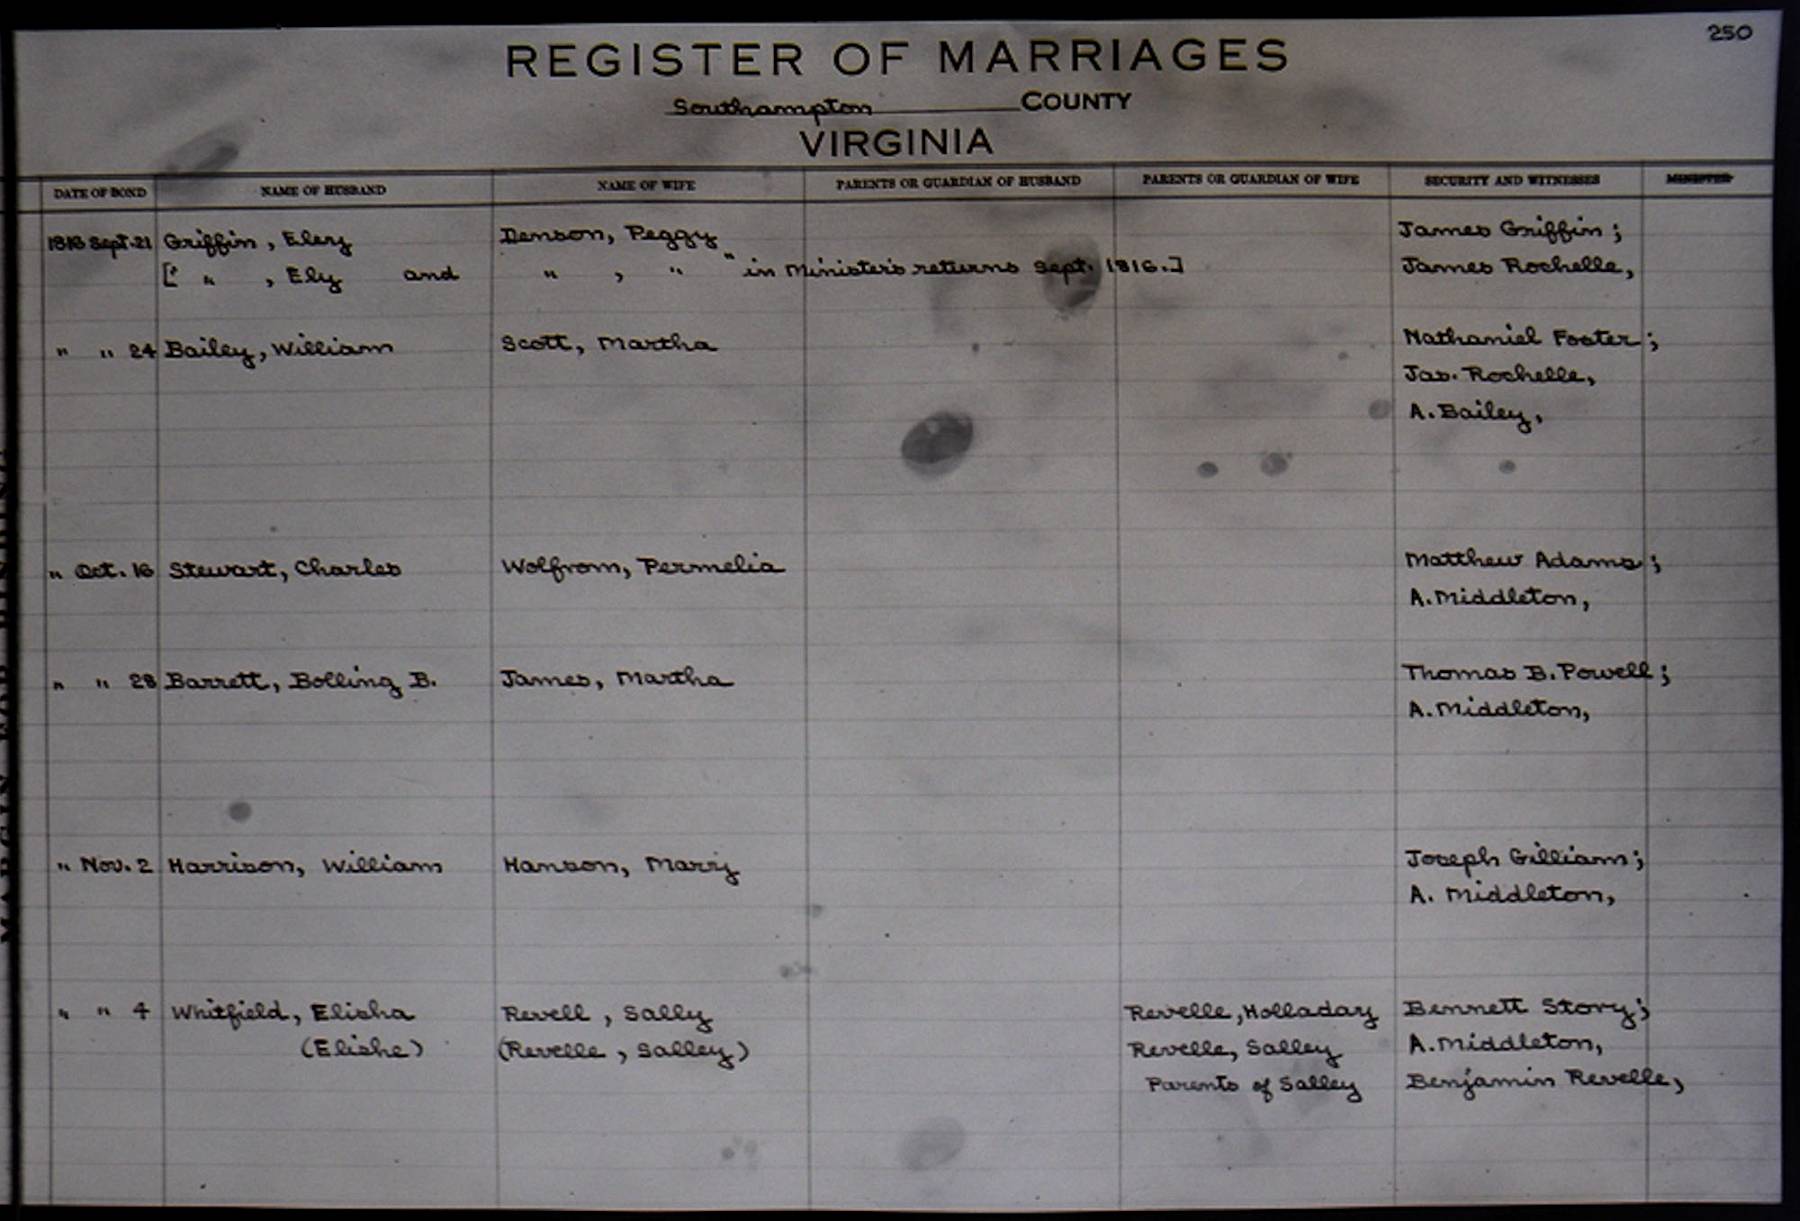 250
REGISTER OF MARRIAGES
Southampton COUNTY
VIRGINIA
DATE OF BOND NAME OF HUSBAND NAME OF WIFE PARENTS OR GUARDIAN OF HUSBAND PARENTS OR GUARDIAN OF WIFE SECURITY AND WITNESSES MINISTER
1816 Sept. 21 Griffin, Elery Denson, Peggy James Griffin;
[" " , Ely and " , " " in Minister's returns Sept. 1816.] James Rochelle,
" " 24 Bailey, William Scott, Martha Nathaniel Foster;
Jas. Rochelle,
A. Bailey,
" Oct. 16 Stewart, Charles Wolfrom, Permelia Matthew Adams;
A. Middleton,
" " 28 Barrett, Bolling B. James, Martha Thomas B. Powell;
A. Middleton,
" Nov. 2 Harrison, William Hanson, Mary Joseph Gilliam;
A. Middleton,
" " 4 Whitfield, Elisha Revell, Sally Revelle, Holladay Bennett Story;
(Elishe) (Revelle, Salley) Revelle, Salley A. Middleton,
Parents of Salley Benjamin Revelle,